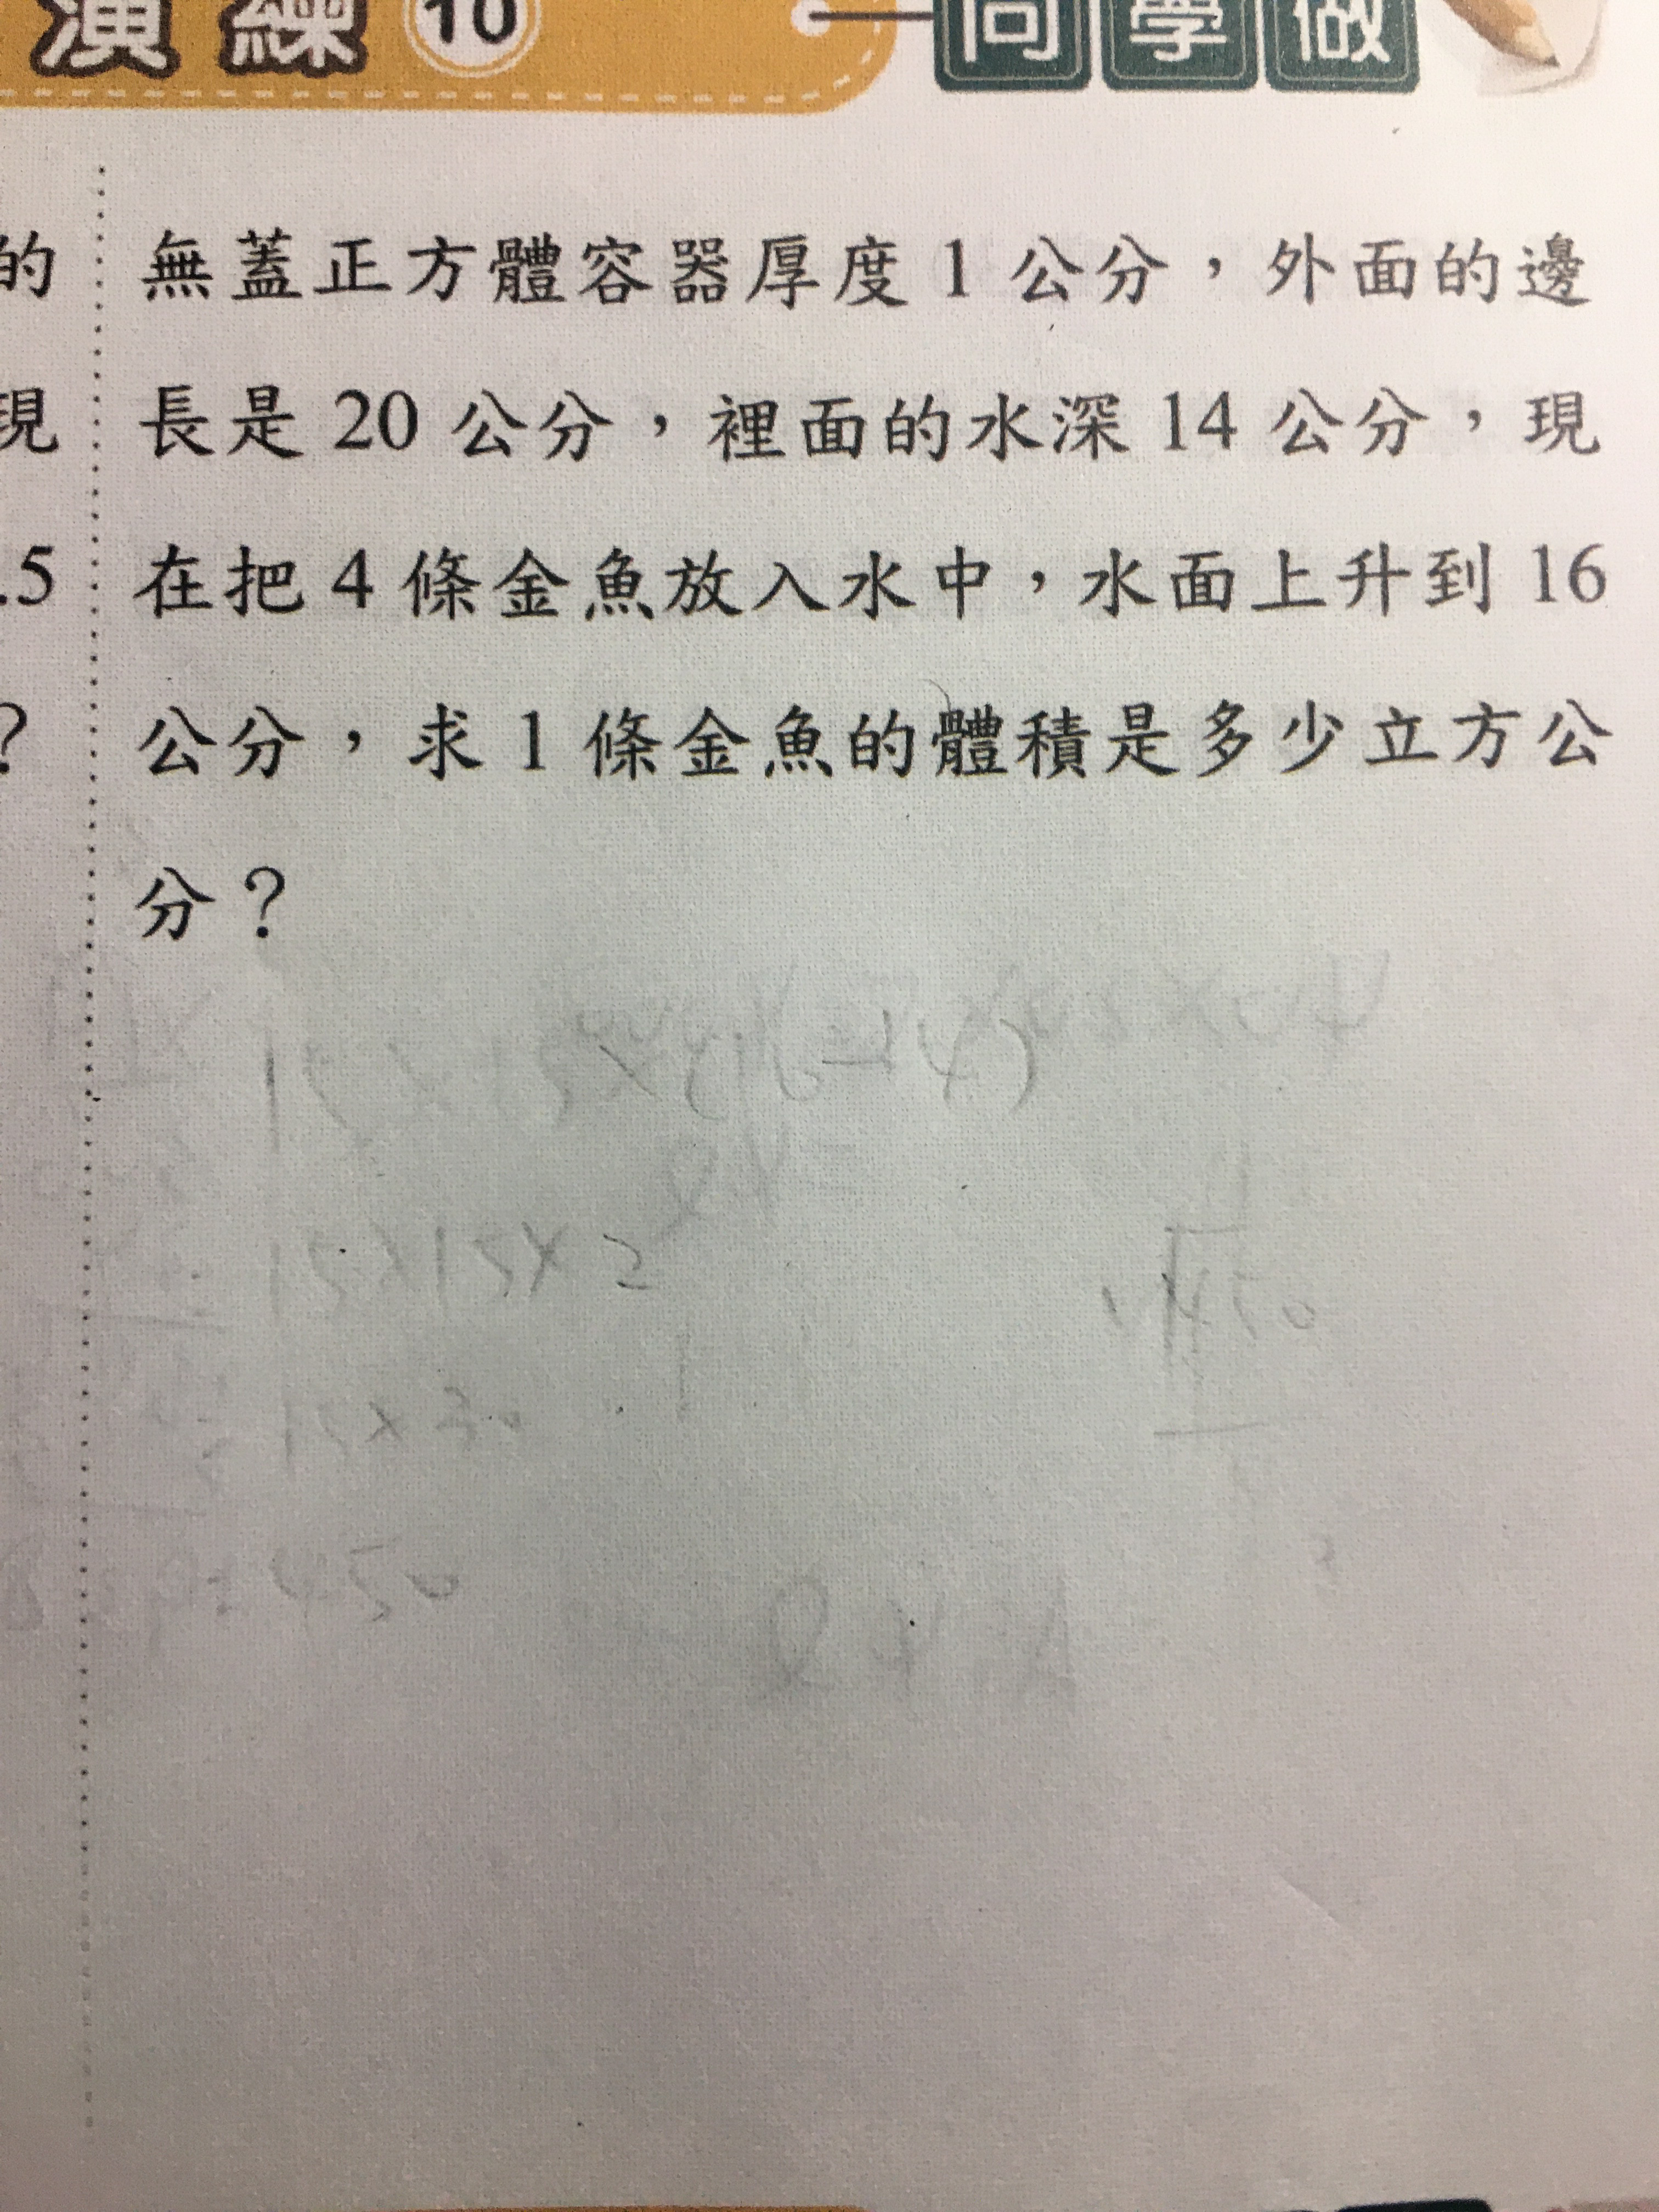 演練 10 同學做
的
現
.5
?
無蓋正方體容器厚度 1 公分，外面的邊
長是 20 公分，裡面的水深 14 公分，現
在把 4 條金魚放入水中，水面上升到 16
公分，求 1 條金魚的體積是多少立方公
分？